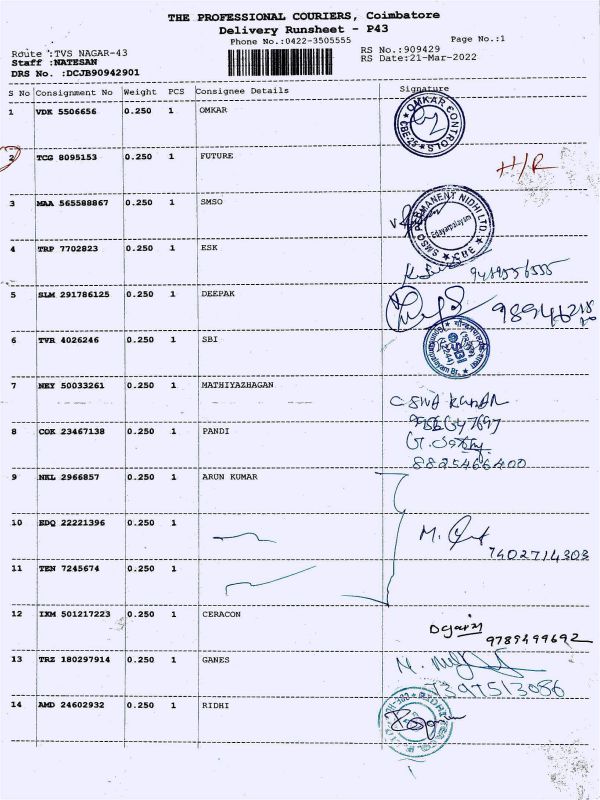 THE PROFESSIONAL COURIERS, Coimbatore
Delivery Runsheet - P43
Phone No.:0422-3505555
Page No.:1
Route :TVS NAGAR-43
RS No.:909429
Staff :NATESAN
RS Date:21-Mar-2022
DRS No. :DCJB90942901
S No Consignment No Weight PCS Consignee Details Signature
1 VDK 5506656 0.250 1 OMKAR
OMKAR CONTROLS
CBE-25
2 TCG 8095153 0.250 1 FUTURE
H/R
3 MAA 565588867 0.250 1 SMSO
SMSO PERMANENT NIDHI LTD.
Edayarpalayam
CBE
4 TRP 7702823 0.250 1 ESK
9489556555
5 SLM 291786125 0.250 1 DEEPAK
6 TVR 4026246 0.250 1 SBI
SBI
7 NEY 50033261 0.250 1 MATHIYAZHAGAN
8 COK 23467138 0.250 1 PANDI
8825466400
9 NKL 2966857 0.250 1 ARUN KUMAR
10 EDQ 22221396 0.250 1
M.
7402714303
11 TEN 7245674 0.250 1
12 IXM 501217223 0.250 1 CERACON
9789499692
13 TRZ 180297914 0.250 1 GANES
7397513086
14 AMD 24602932 0.250 1 RIDHI